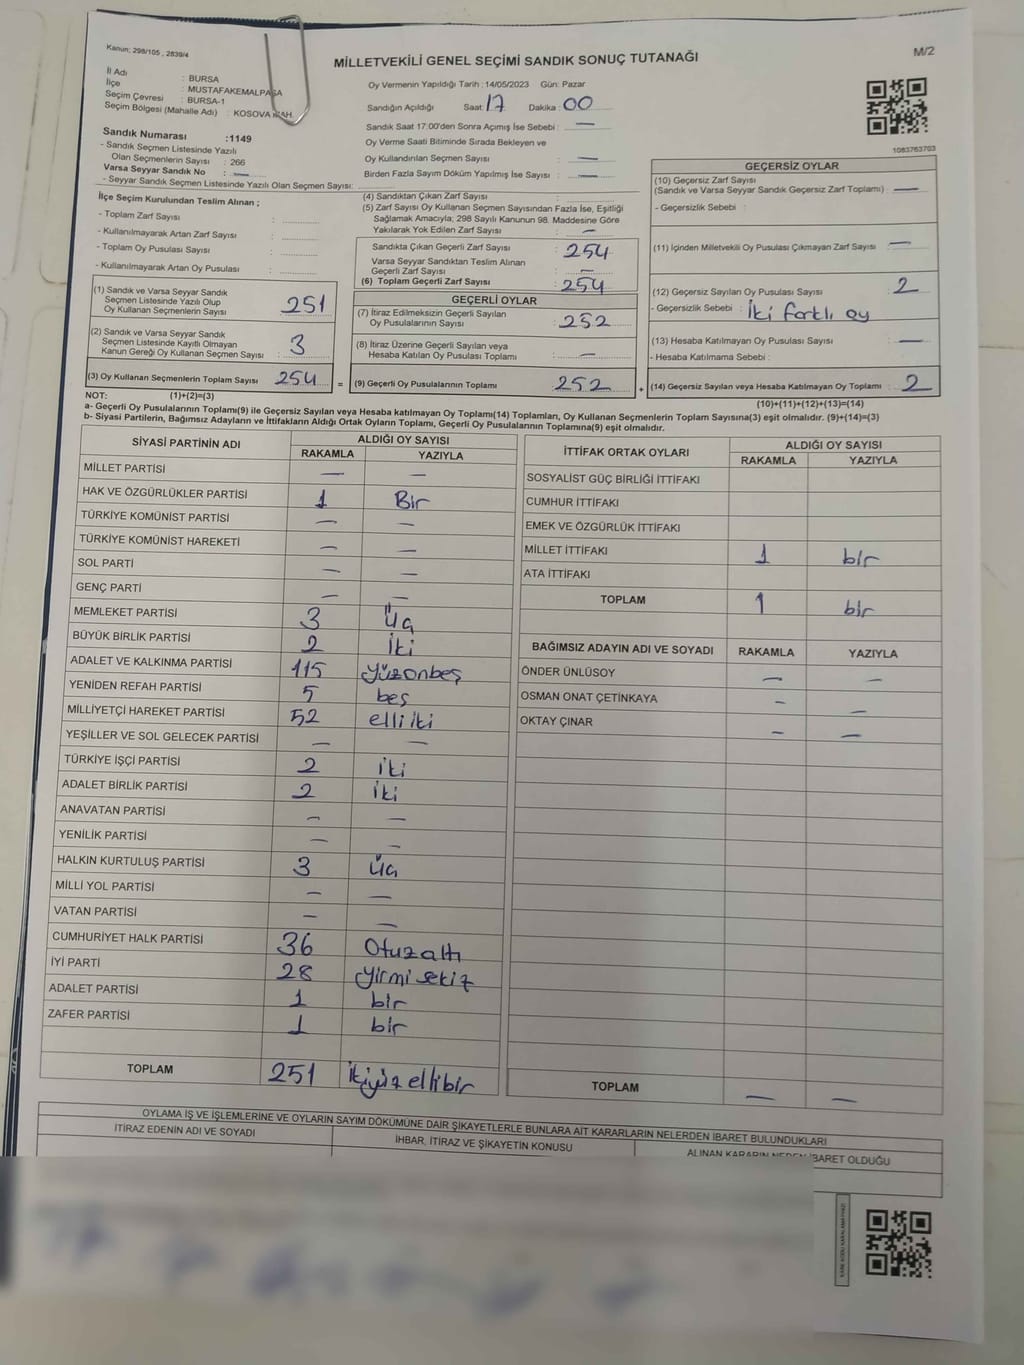 Kanun; 298/105 , 2839/4
M/2
MİLLETVEKİLİ GENEL SEÇİMİ SANDIK SONUÇ TUTANAĞI
İl Adı : BURSA
İlçe : MUSTAFAKEMALPAŞA
Seçim Çevresi : BURSA-1
Seçim Bölgesi (Mahalle Adı) : KOSOVA MAH.
Oy Vermenin Yapıldığı Tarih :14/05/2023 Gün: Pazar
Sandığın Açıldığı Saat: 17 Dakika: 00
Sandık Saat 17:00'den Sonra Açımış İse Sebebi : —
Oy Verme Saati Bitiminde Sırada Bekleyen ve
Oy Kullandırılan Seçmen Sayısı : —
Birden Fazla Sayım Döküm Yapılmış İse Sayısı : —
1083763703
Sandık Numarası :1149
- Sandık Seçmen Listesinde Yazılı
Olan Seçmenlerin Sayısı : 266
Varsa Seyyar Sandık No : —
- Seyyar Sandık Seçmen Listesinde Yazılı Olan Seçmen Sayısı:
İlçe Seçim Kurulundan Teslim Alınan ;
- Toplam Zarf Sayısı :
- Kullanılmayarak Artan Zarf Sayısı :
- Toplam Oy Pusulası Sayısı :
- Kullanılmayarak Artan Oy Pusulası :
(1) Sandık ve Varsa Seyyar Sandık
Seçmen Listesinde Yazılı Olup
Oy Kullanan Seçmenlerin Sayısı : 251
(2) Sandık ve Varsa Seyyar Sandık
Seçmen Listesinde Kayıtlı Olmayan
Kanun Gereği Oy Kullanan Seçmen Sayısı : 3
(3) Oy Kullanan Seçmenlerin Toplam Sayısı : 254 =
(4) Sandıktan Çıkan Zarf Sayısı :
(5) Zarf Sayısı Oy Kullanan Seçmen Sayısından Fazla İse, Eşitliği
Sağlamak Amacıyla; 298 Sayılı Kanunun 98. Maddesine Göre
Yakılarak Yok Edilen Zarf Sayısı : —
Sandıkta Çıkan Geçerli Zarf Sayısı : 254
Varsa Seyyar Sandıktan Teslim Alınan
Geçerli Zarf Sayısı : —
(6) Toplam Geçerli Zarf Sayısı : 254
GEÇERLİ OYLAR
(7) İtiraz Edilmeksizin Geçerli Sayılan
Oy Pusulalarının Sayısı : 252
(8) İtiraz Üzerine Geçerli Sayılan veya
Hesaba Katılan Oy Pusulası Toplamı : —
(9) Geçerli Oy Pusulalarının Toplamı : 252 +
GEÇERSİZ OYLAR
(10) Geçersiz Zarf Sayısı
(Sandık ve Varsa Seyyar Sandık Geçersiz Zarf Toplamı) : —
- Geçersizlik Sebebi :
(11) İçinden Milletvekili Oy Pusulası Çıkmayan Zarf Sayısı : —
(12) Geçersiz Sayılan Oy Pusulası Sayısı : 2
- Geçersizlik Sebebi : İki farklı oy
(13) Hesaba Katılmayan Oy Pusulası Sayısı : —
- Hesaba Katılmama Sebebi :
(14) Geçersiz Sayılan veya Hesaba Katılmayan Oy Toplamı : 2
NOT: (1)+(2)=(3)
(10)+(11)+(12)+(13)=(14)
a- Geçerli Oy Pusulalarının Toplamı(9) ile Geçersiz Sayılan veya Hesaba katılmayan Oy Toplamı(14) Toplamları, Oy Kullanan Seçmenlerin Toplam Sayısına(3) eşit olmalıdır. (9)+(14)=(3)
b- Siyasi Partilerin, Bağımsız Adayların ve İttifakların Aldığı Ortak Oyların Toplamı, Geçerli Oy Pusulalarının Toplamına(9) eşit olmalıdır.
SİYASİ PARTİNİN ADI ALDIĞI OY SAYISI
RAKAMLA YAZIYLA
MİLLET PARTİSİ — —
HAK VE ÖZGÜRLÜKLER PARTİSİ 1 Bir
TÜRKİYE KOMÜNİST PARTİSİ — —
TÜRKİYE KOMÜNİST HAREKETİ — —
SOL PARTİ — —
GENÇ PARTİ — —
MEMLEKET PARTİSİ 3 Üç
BÜYÜK BİRLİK PARTİSİ 2 İki
ADALET VE KALKINMA PARTİSİ 115 yüzonbeş
YENİDEN REFAH PARTİSİ 5 beş
MİLLİYETÇİ HAREKET PARTİSİ 52 elliiki
YEŞİLLER VE SOL GELECEK PARTİSİ — —
TÜRKİYE İŞÇİ PARTİSİ 2 iki
ADALET BİRLİK PARTİSİ 2 iki
ANAVATAN PARTİSİ — —
YENİLİK PARTİSİ — —
HALKIN KURTULUŞ PARTİSİ 3 üç
MİLLİ YOL PARTİSİ — —
VATAN PARTİSİ — —
CUMHURİYET HALK PARTİSİ 36 Otuzaltı
İYİ PARTİ 28 yirmi sekiz
ADALET PARTİSİ 1 bir
ZAFER PARTİSİ 1 bir
TOPLAM 251 ikiyüz ellibir
İTTİFAK ORTAK OYLARI ALDIĞI OY SAYISI
RAKAMLA YAZIYLA
SOSYALİST GÜÇ BİRLİĞİ İTTİFAKI
CUMHUR İTTİFAKI
EMEK VE ÖZGÜRLÜK İTTİFAKI
MİLLET İTTİFAKI 1 bir
ATA İTTİFAKI
TOPLAM 1 bir
BAĞIMSIZ ADAYIN ADI VE SOYADI RAKAMLA YAZIYLA
ÖNDER ÜNLÜSOY — —
OSMAN ONAT ÇETİNKAYA — —
OKTAY ÇINAR — —
TOPLAM — —
OYLAMA İŞ VE İŞLEMLERİNE VE OYLARIN SAYIM DÖKÜMÜNE DAİR ŞİKAYETLERLE BUNLARA AİT KARARLARIN NELERDEN İBARET BULUNDUKLARI
İTİRAZ EDENİN ADI VE SOYADI İHBAR, İTİRAZ VE ŞİKAYETİN KONUSU ALINAN KARARIN NEDEN İBARET OLDUĞU